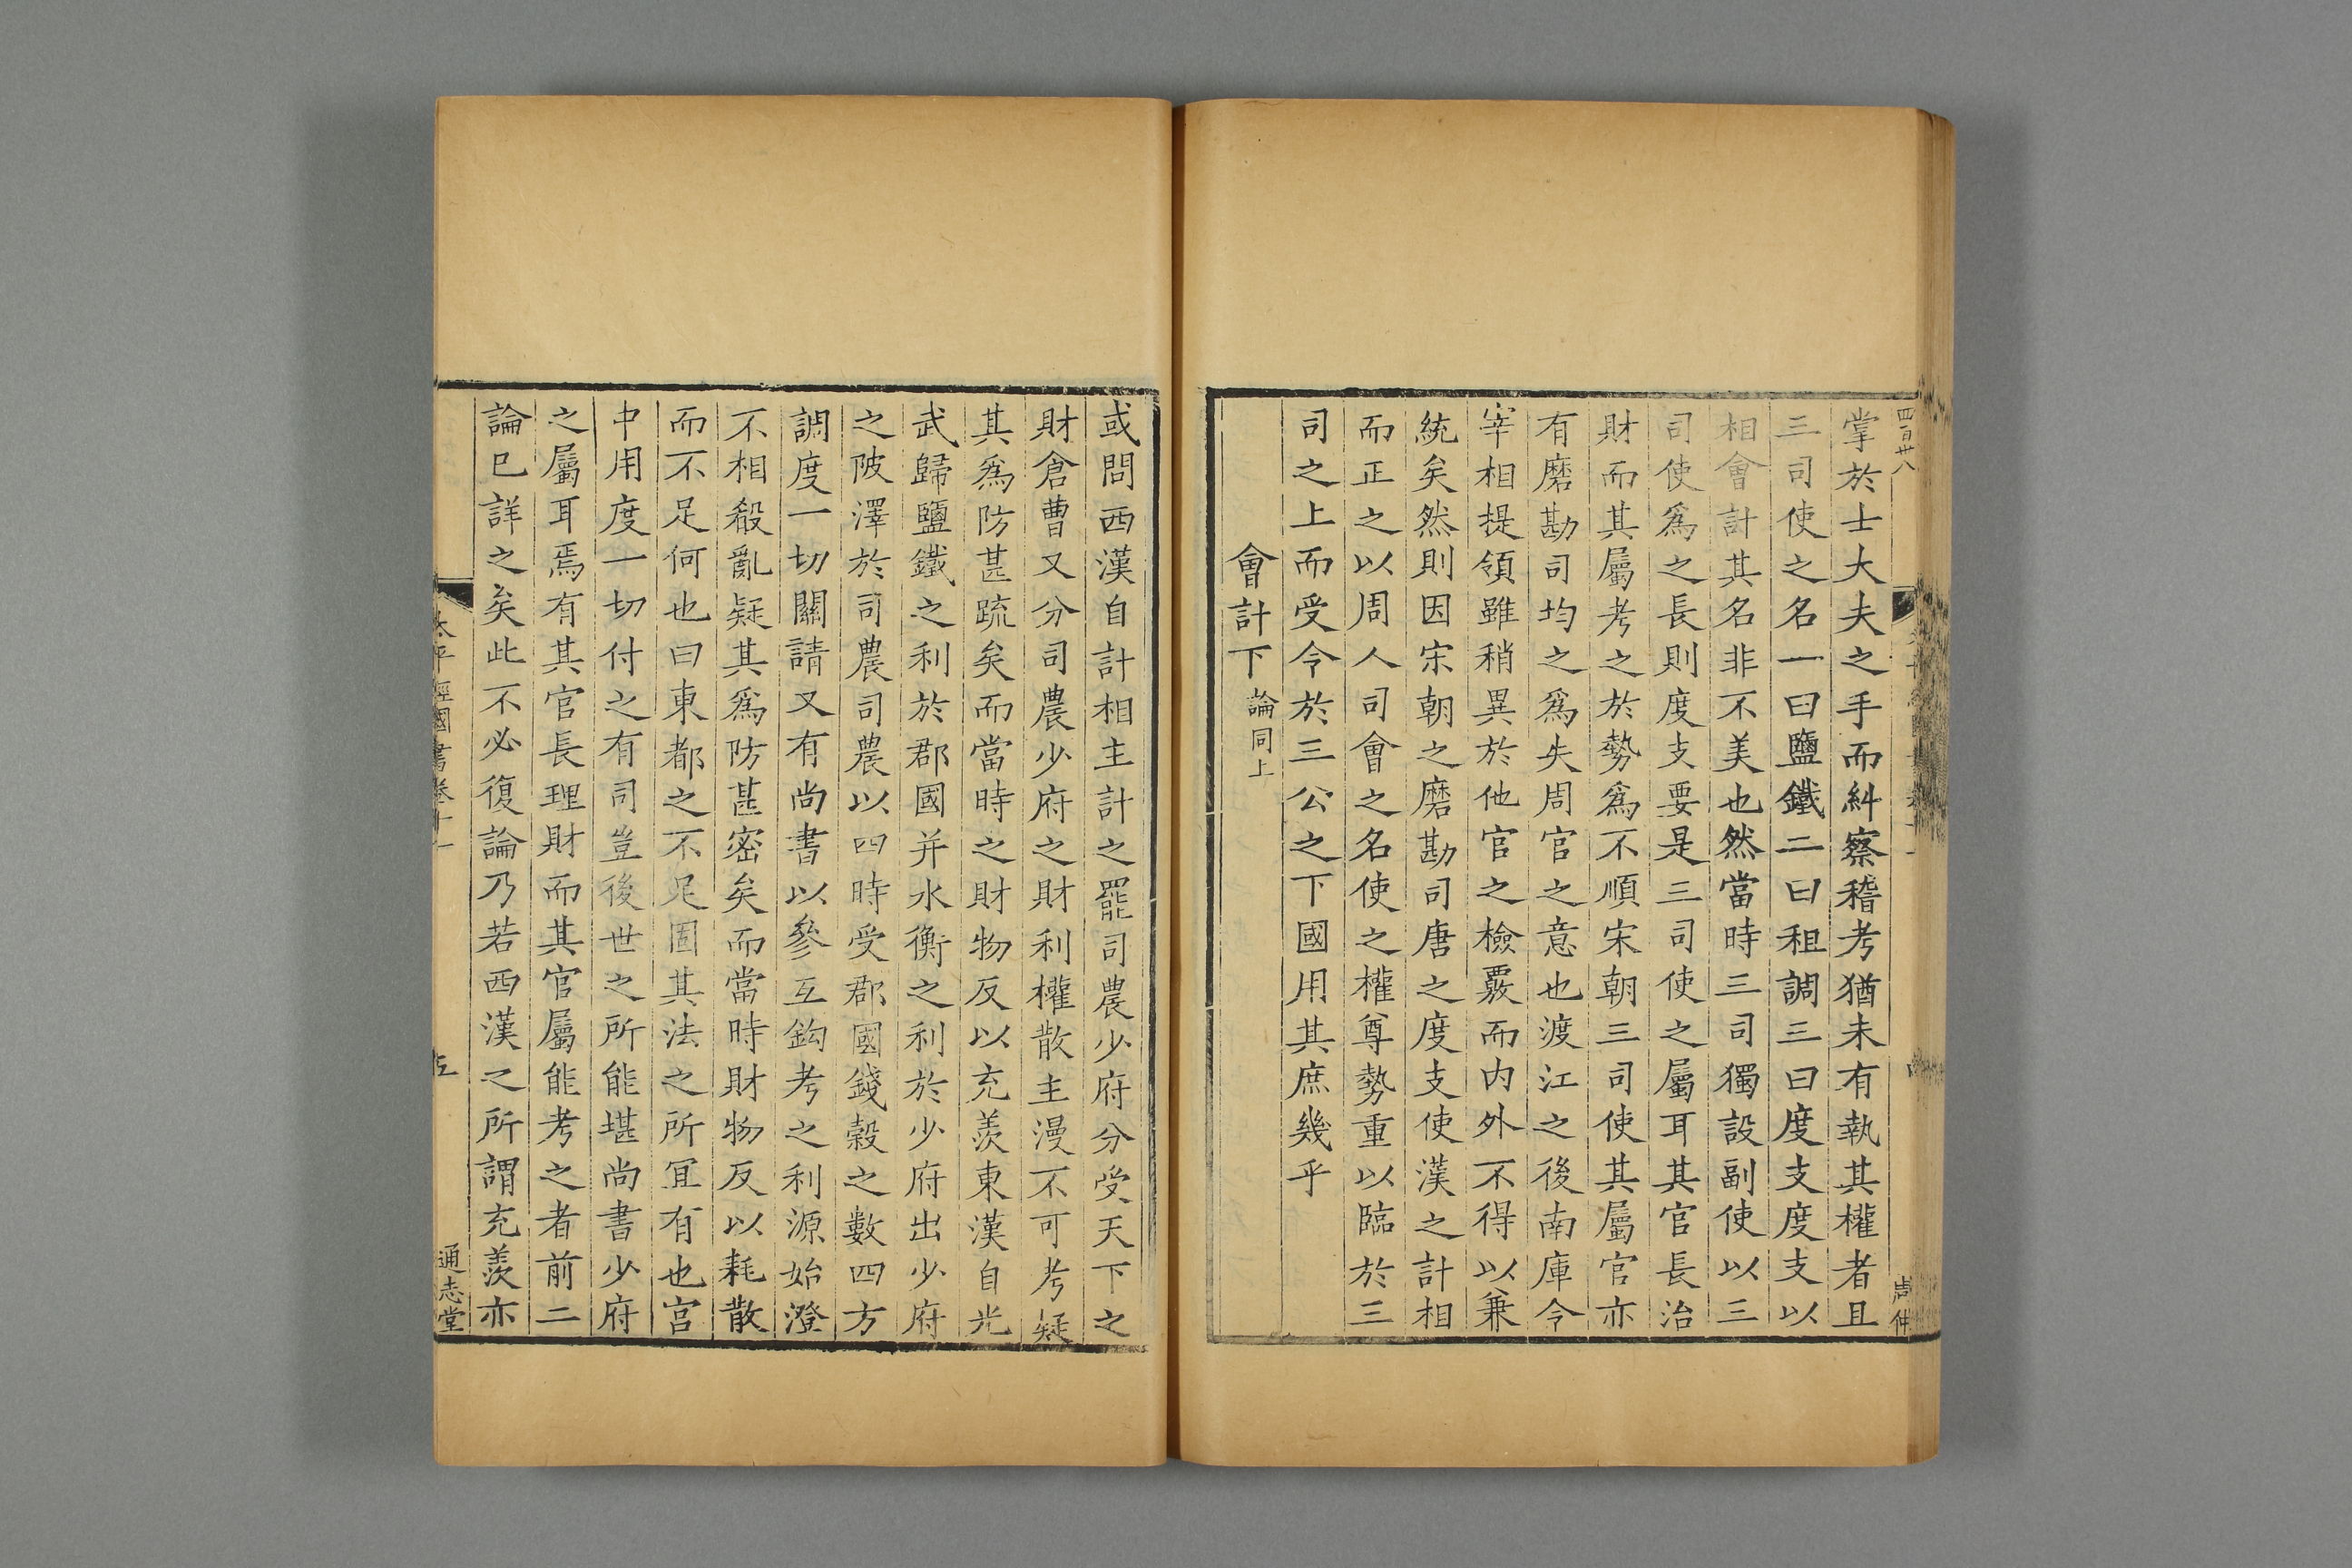 四百廿八
掌於士大夫之手而糾察稽考猶未有執其權者且
三司使之名一曰鹽鐵二曰租調三曰度支度支以
相會計其名非不美也然當時三司獨設副使以三
司使爲之長則度支要是三司使之屬耳其官長治
財而其屬考之於勢爲不順宋朝三司使其屬官亦
有磨勘司均之爲失周官之意也渡江之後南庫令
宰相提領雖稍異於他官之檢覈而内外不得以兼
統矣然則因宋朝之磨勘司唐之度支使漢之計相
而正之以周人司會之名使之權尊勢重以臨於三
司之上而受令於三公之下國用其庶幾乎
會計下論同上
或問西漢自計相主計之罷司農少府分受天下之
財倉曹又分司農少府之財利權散主漫不可考疑
其爲防甚疏矣而當時之財物反以充羨東漢自光
武歸鹽鐵之利於郡國并水衡之利於少府出少府
之陂澤於司農司農以四時受郡國錢穀之數四方
調度一切關請又有尚書以參互鈎考之利源始澄
不相殽亂疑其爲防甚密矣而當時財物反以耗散
而不足何也曰東都之不足固其法之所宜有也宫
中用度一切付之有司豈後世之所能堪尚書少府
之屬耳焉有其官長理財而其官屬能考之者前二
論已詳之矣此不必復論乃若西漢之所謂充羨亦
太平經國書卷十一
五
通志堂